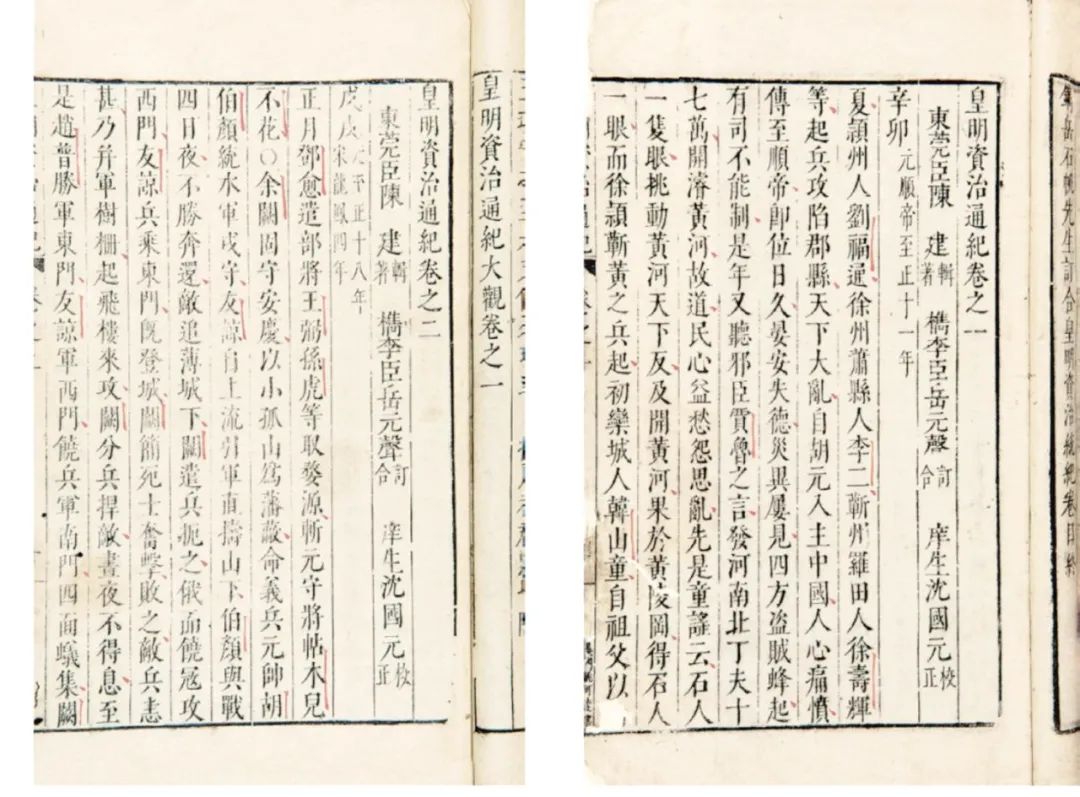 岳石帆先生訂合皇明資治統紀卷目終
皇明資治通紀卷之一
東莞臣陳 建 輯著 檇李臣岳元聲 訂合 庠生沈國元 校正
辛卯 元順帝至正十一年
夏潁州人劉福通徐州蕭縣人李二蘄州羅田人徐壽輝
等起兵攻陷郡縣天下大亂自胡元入主中國人心痛憤
傳至順帝即位日久晏安失德災異屢見四方盜賊蜂起
有司不能制是年又聽邪臣賈魯之言發河南北丁夫十
七萬開濬黃河故道民心益愁怨思亂先是童謠云石人
一隻眼挑動黃河天下反及開黃河果於黃陵岡得石人
一眼而徐潁蘄黃之兵起初欒城人韓山童自祖父以
皇明資治通紀大觀卷之一
皇明資治通紀卷之二
東莞臣陳 建 輯著 檇李臣岳元聲 訂合 庠生沈國元 校正
戊戌 元至正十八年 宋龍鳳四年
正月鄧愈遣部將王弼孫虎等取婺源斬元守將帖木兒
不花○余闕固守安慶以小孤山爲藩蔽命義兵元帥胡
伯顏統水軍戍守友諒自上流引軍直擣山下伯顏與戰
四日夜不勝奔還敵追薄城下闕遣兵扼之俄而饒寇攻
西門友諒兵乘東門旣登城闕簡死士奮擊敗之敵兵恚
甚乃并軍樹柵起飛樓來攻闕分兵捍敵晝夜不得息至
是趙普勝軍東門友諒軍西門饒兵軍南門四面蟻集闕